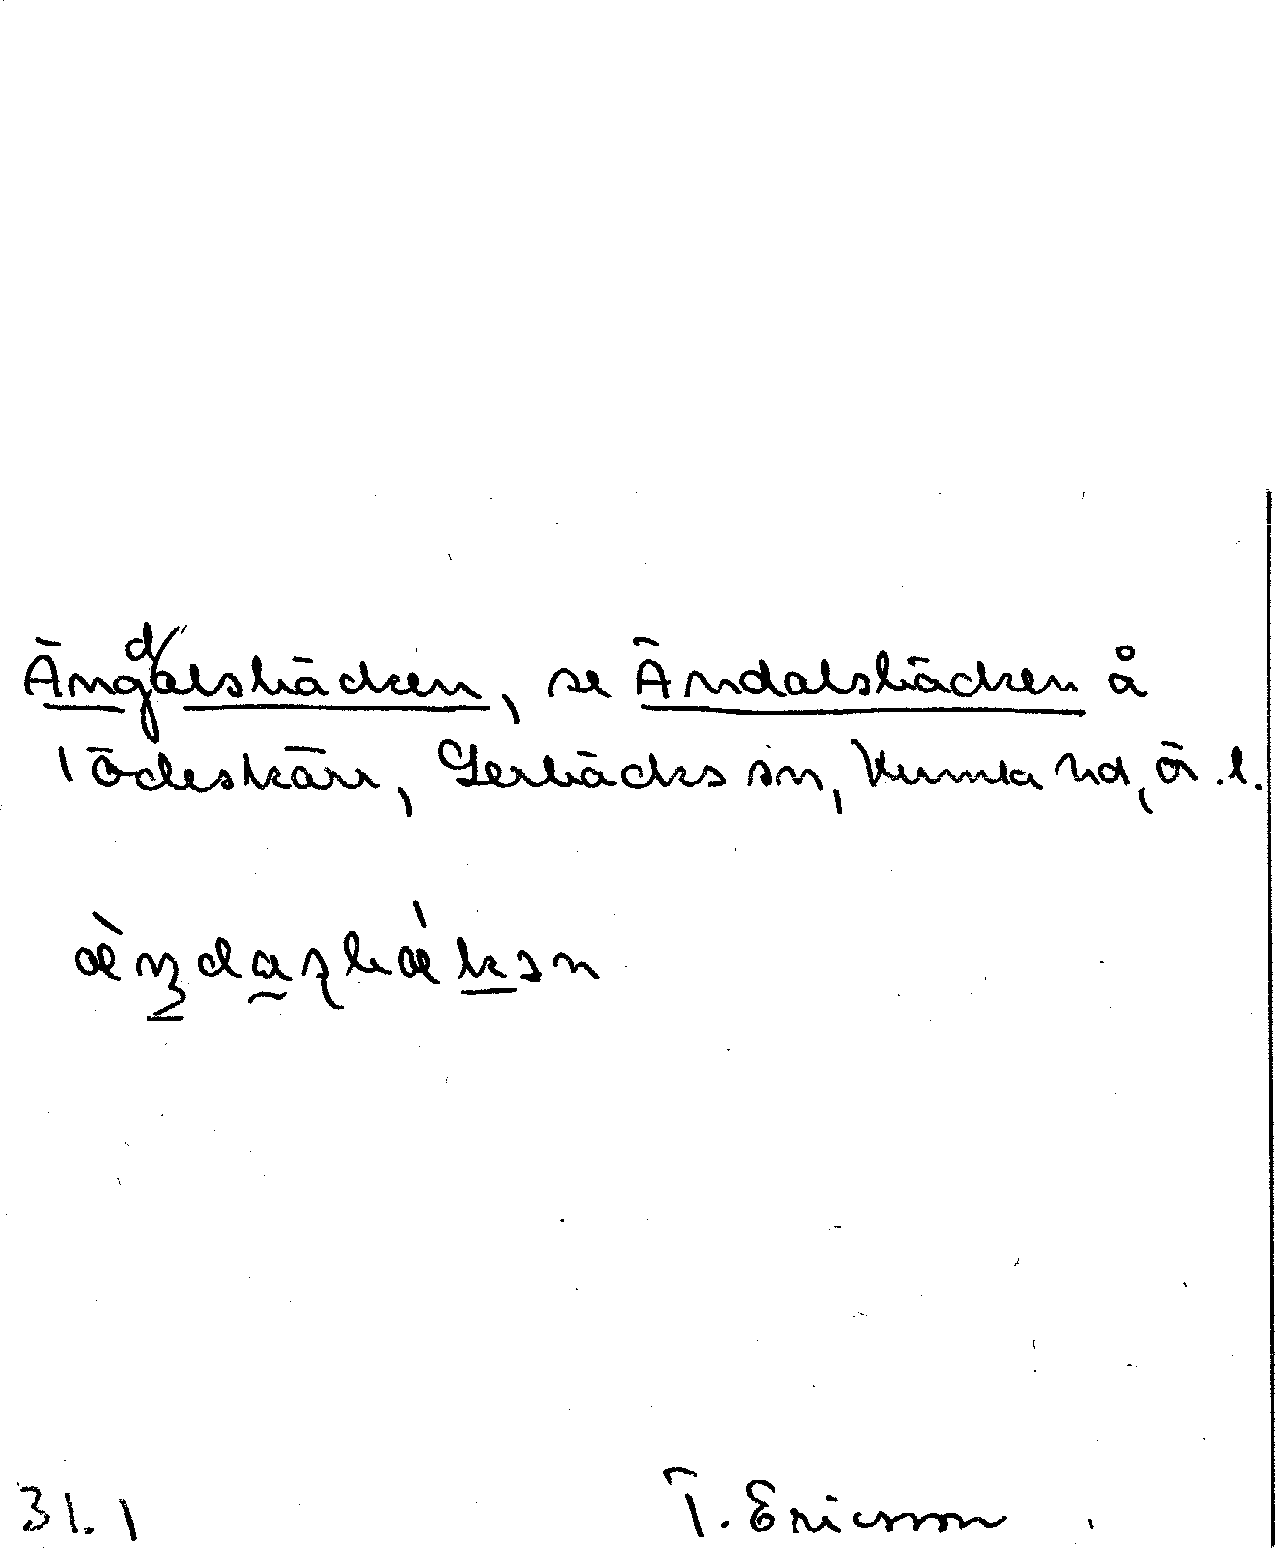 Ängdalsbäcken, se Ändalsbäcken å
Tödeskärr, Gerbäcks sn, Kumla hd, ör. l.
31.1 T. Ericsson